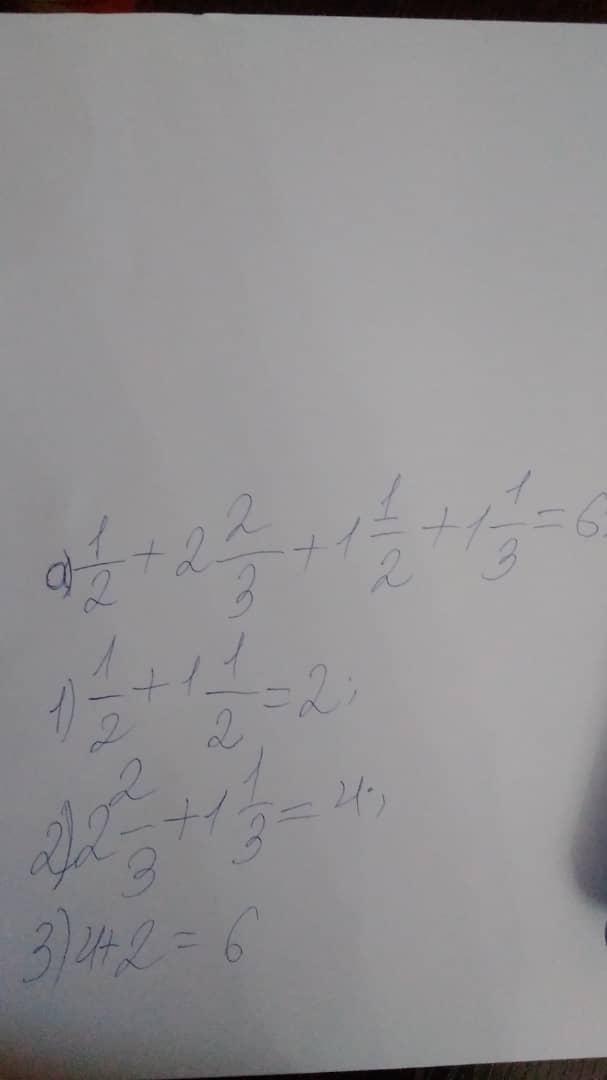 а) 1/2 + 2 2/3 + 1 1/2 + 1 1/3 = 6;
1) 1/2 + 1 1/2 = 2;
2) 2 2/3 + 1 1/3 = 4;
3) 4+2 = 6